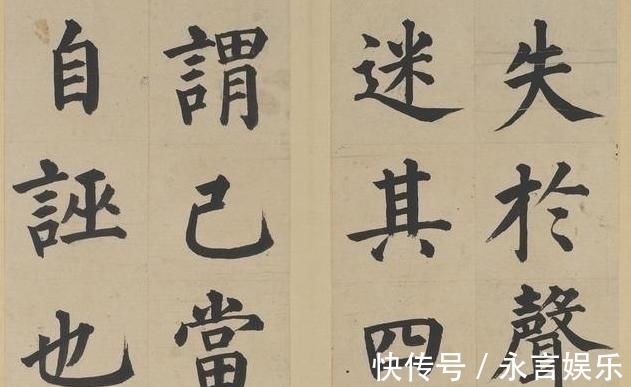 失於聲
迷其四
謂己當
自誣也
快传号 / 永言娱乐